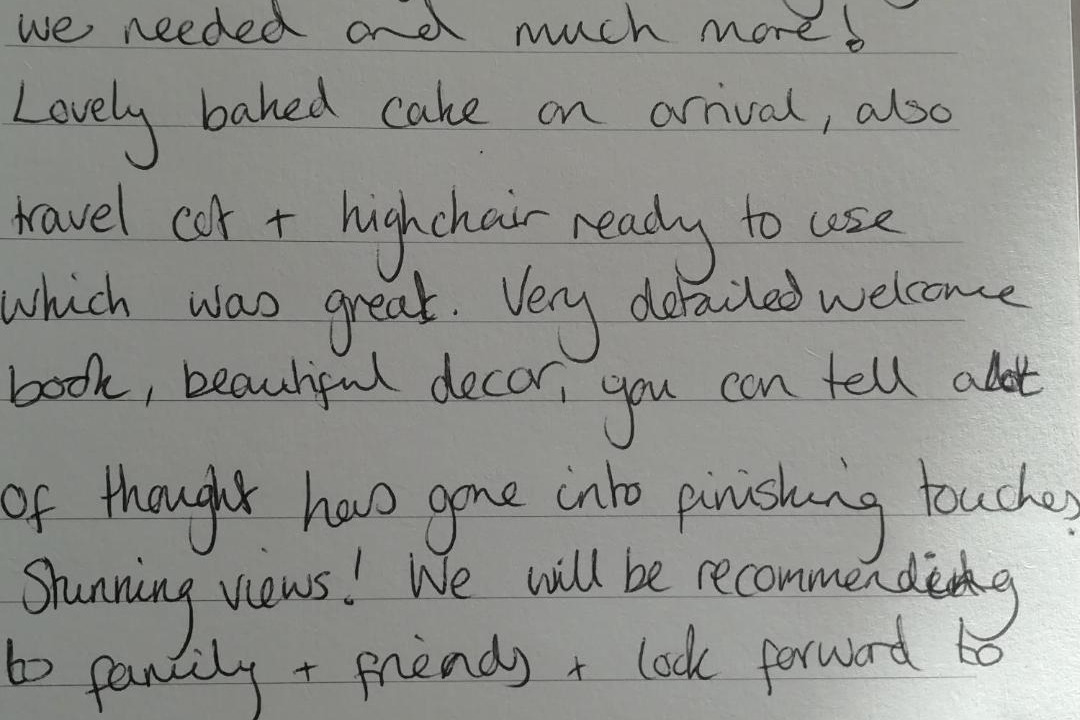 we needed and much more!
Lovely baked cake on arrival, also
travel cot + highchair ready to use
which was great. Very detailed welcome
book, beautiful decor, you can tell alot
of thought has gone into finishing touches.
Stunning views! We will be recommending
to family + friends + look forward to